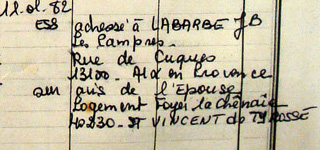 11.01.82
ESS adressé à LABARBE JB
Les Lampres.
Rue de Cuques
13100 - Aix en Provence
sur avis de l'Epouse
Logement Foyer la chênaie
40230 - ST VINCENT de TYROSSE